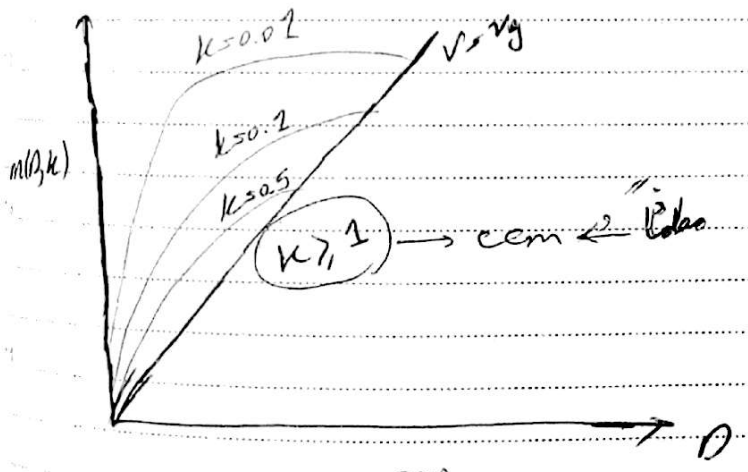 k=0.01
V=Vg
k=0.1
m(D,k)
k=0.5
k≥1 → ccm ←
D